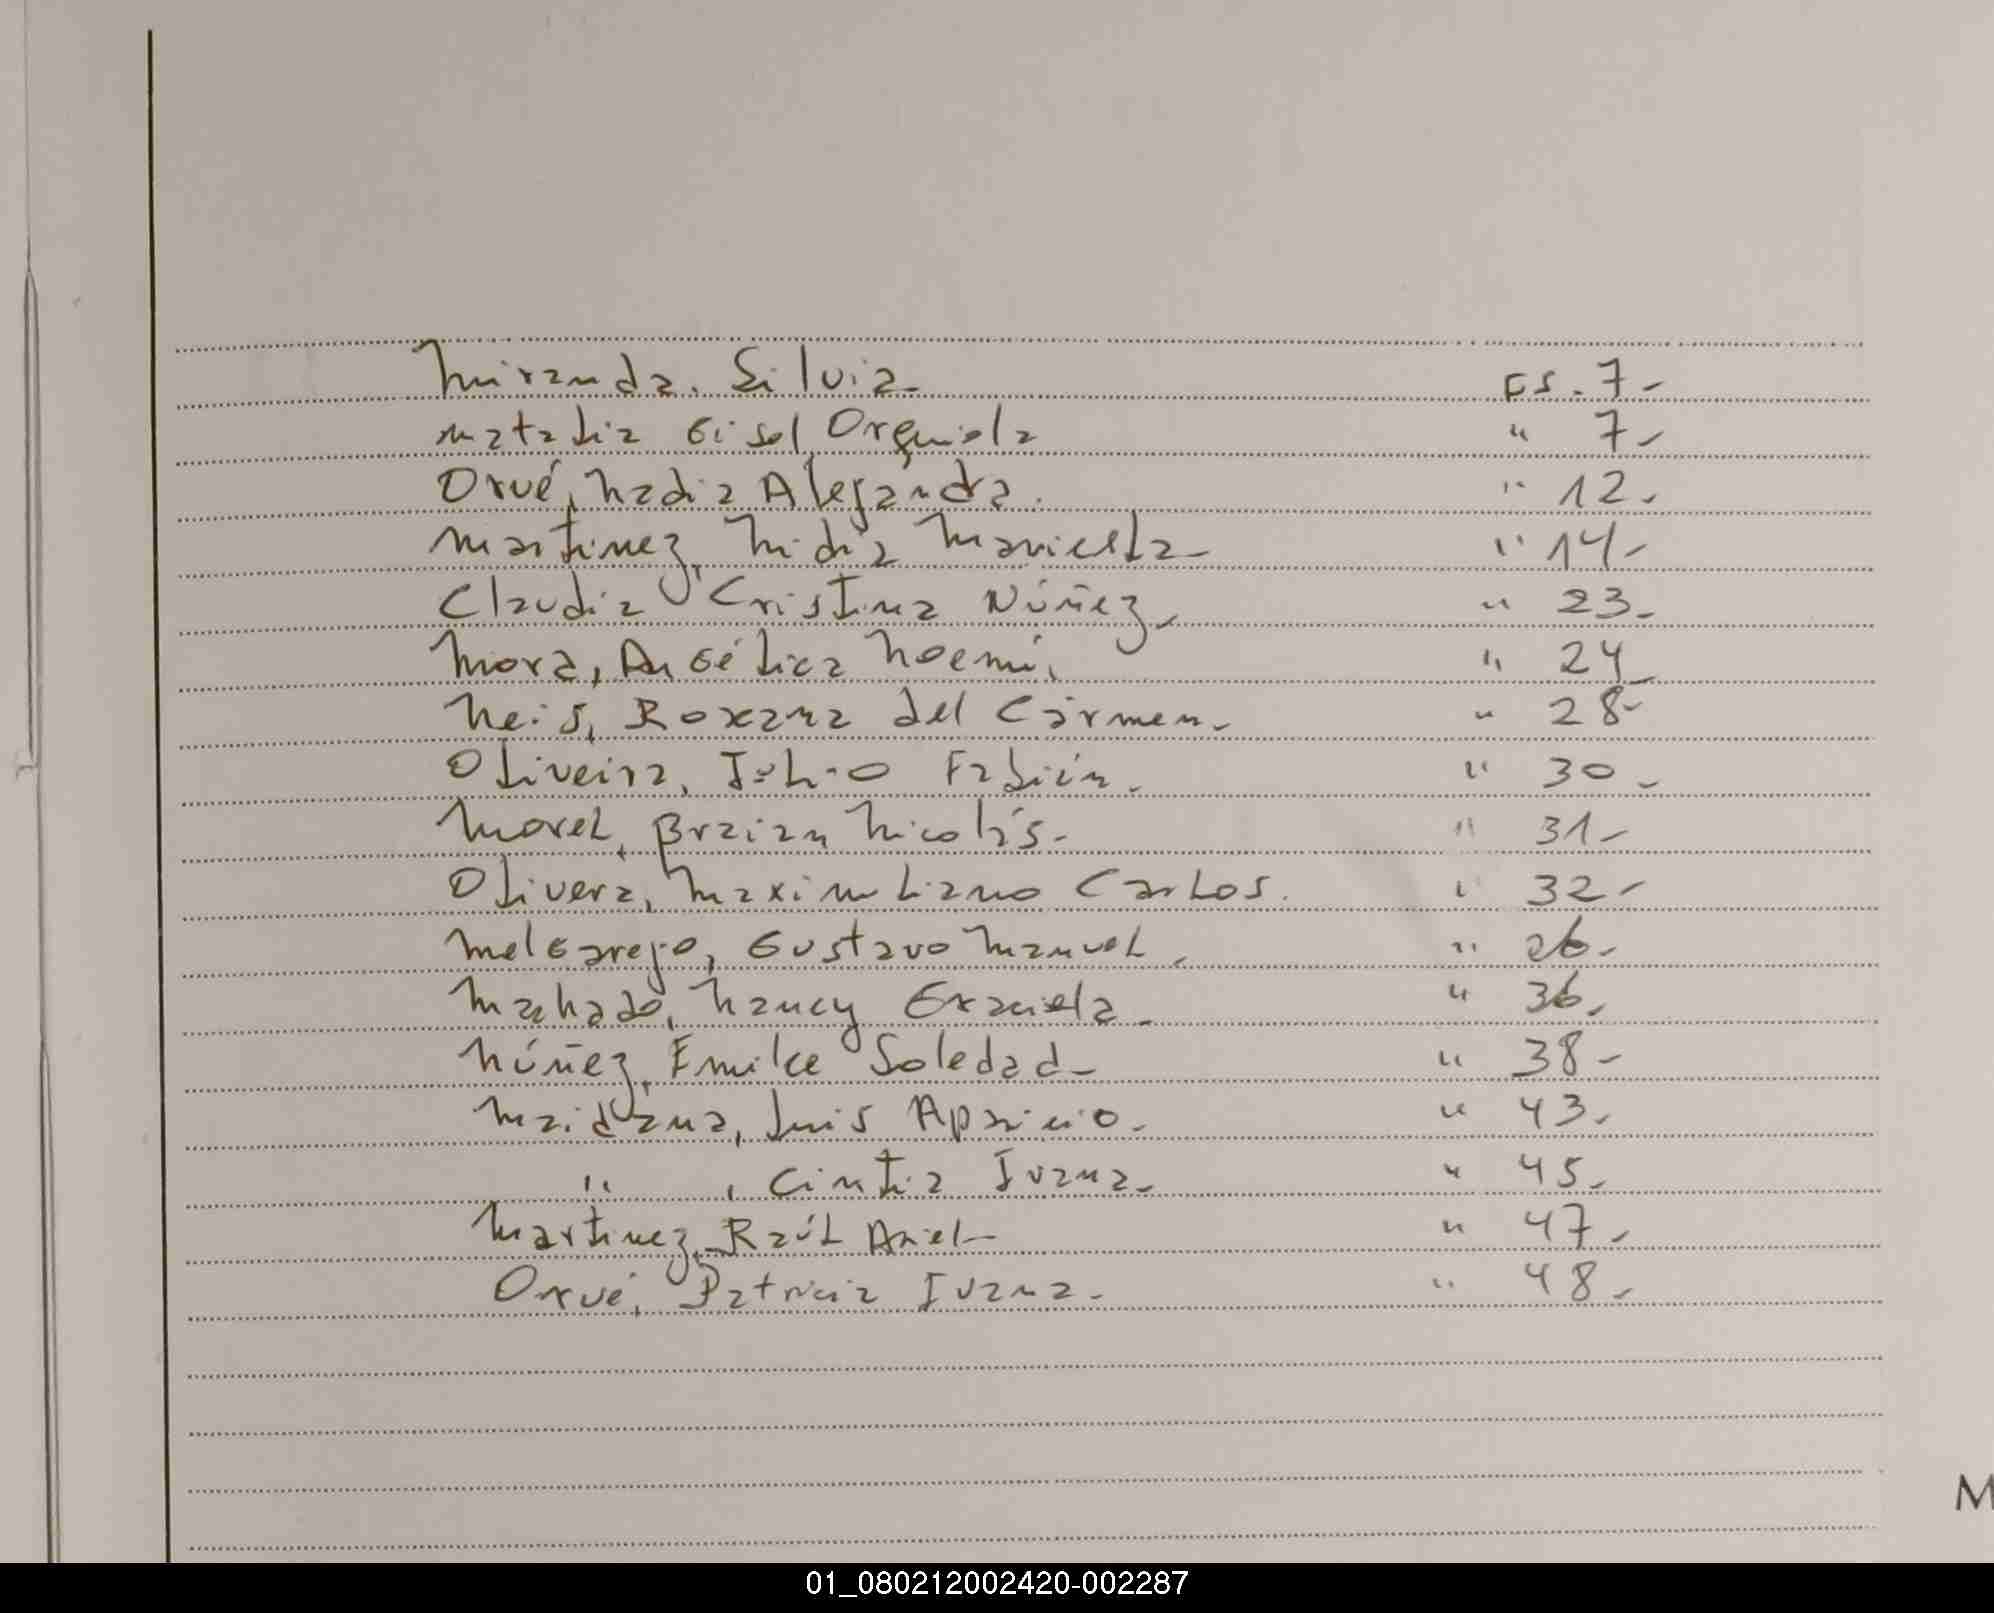 Miranda, Silvia- Fs. 7-
Natalia Gisel Orguiela " 7-
Orué, Nadia Alejandra. " 12.
Martinez, Nidia Mariella- " 14-
Claudia Cristina Núñez- " 23-
Mora, Angélica Noemí. " 24-
Neis, Roxana del Cármen- " 28-
Oliveira, Julio Fabián. " 30-
Morel, Braian Nicolás- " 31-
Olivera, Maximiliano Carlos. " 32-
Melgarejo, Gustavo Manuel. " 26-
Machado, Nancy Graciela- " 36.
Núñez, Emilce Soledad- " 38-
Maidana, Luis Aparicio. " 43-
" , Cintia Ivana- " 45-
Martinez, Raúl Ariel- " 47-
Orué, Patricia Ivana- " 48-
M
01_080212002420-002287